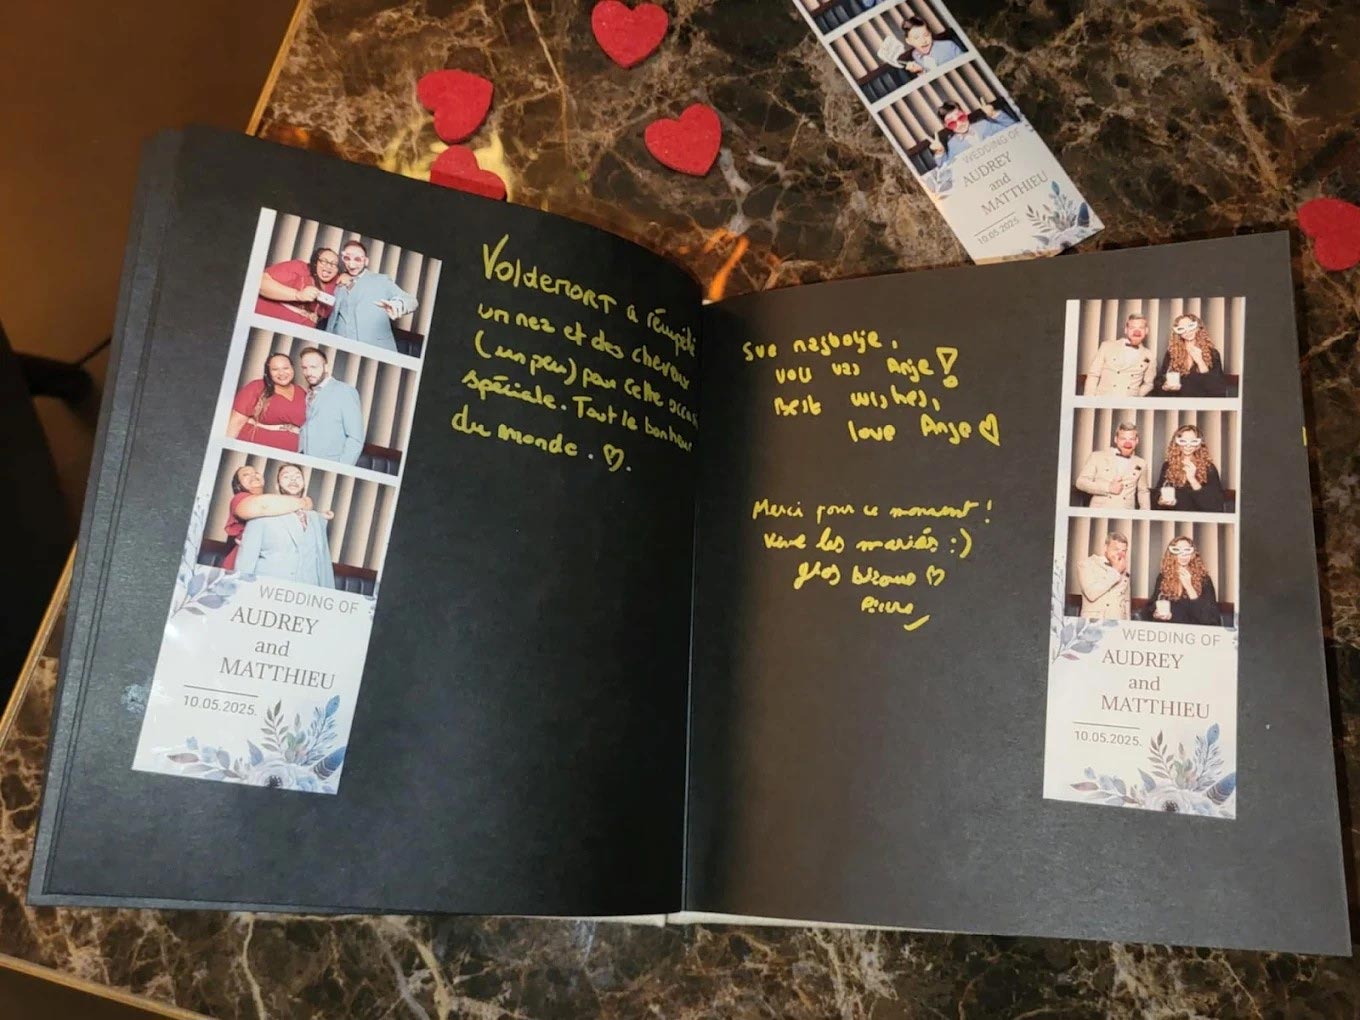 WEDDING OF
AUDREY
and
MATTHIEU
10.05.2025.
VOLDEMORT a récupéré
un nez et des cheveux
(un peu) pour cette
spéciale. Tout le bonheur
du monde. ♡.
WEDDING OF
AUDREY
and
MATTHIEU
10.05.2025.
Sve najbolje,
voli vas Anje!
Best wishes,
love Anje ♡
Merci pour ce moment !
Vive les mariés :)
Gros bisous ♡
Pierre
WEDDING OF
AUDREY
and
MATTHIEU
10.05.2025.